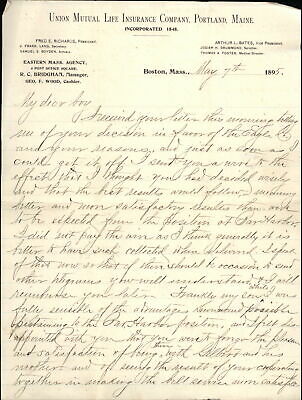 UNION MUTUAL LIFE INSURANCE COMPANY, PORTLAND, MAINE.
INCORPORATED 1848.
FRED E. RICHARDS, PRESIDENT.
J. FRANK LANG, Secretary.
SAMUEL S. BOYDEN, Actuary.
ARTHUR L. BATES, VICE PRESIDENT.
JOSIAH H. DRUMMOND, Counsel.
THOMAS A. FOSTER, Medical Director.
EASTERN MASS. AGENCY,
R. C. BRIDGHAM, Manager,
GEO. F. WOOD, Cashier.
Boston, Mass., May 7th 1895
My dear boy
I received your letter this morning telling
me of your decision in favor of the Eagle
and your reasons, and just as soon as I
could get it off I sent you a wire to the
effect that I thought you had decided wisely
and that the best results would follow
better and more satisfactory results than were
to be expected from the position at
I did not pay the wire as I think generally it is
better to have such collected when delivered I speak
of that now so that if there should be occasion to send
other telegrams you will understand. I will
reimburse you later Frankly my
fully sensible of the advantages
to the Harbor position, and I felt
appointed with you that you won't
and satisfaction of being with
mother and of seeing the results of your cooperating
together in making the service more satisfac